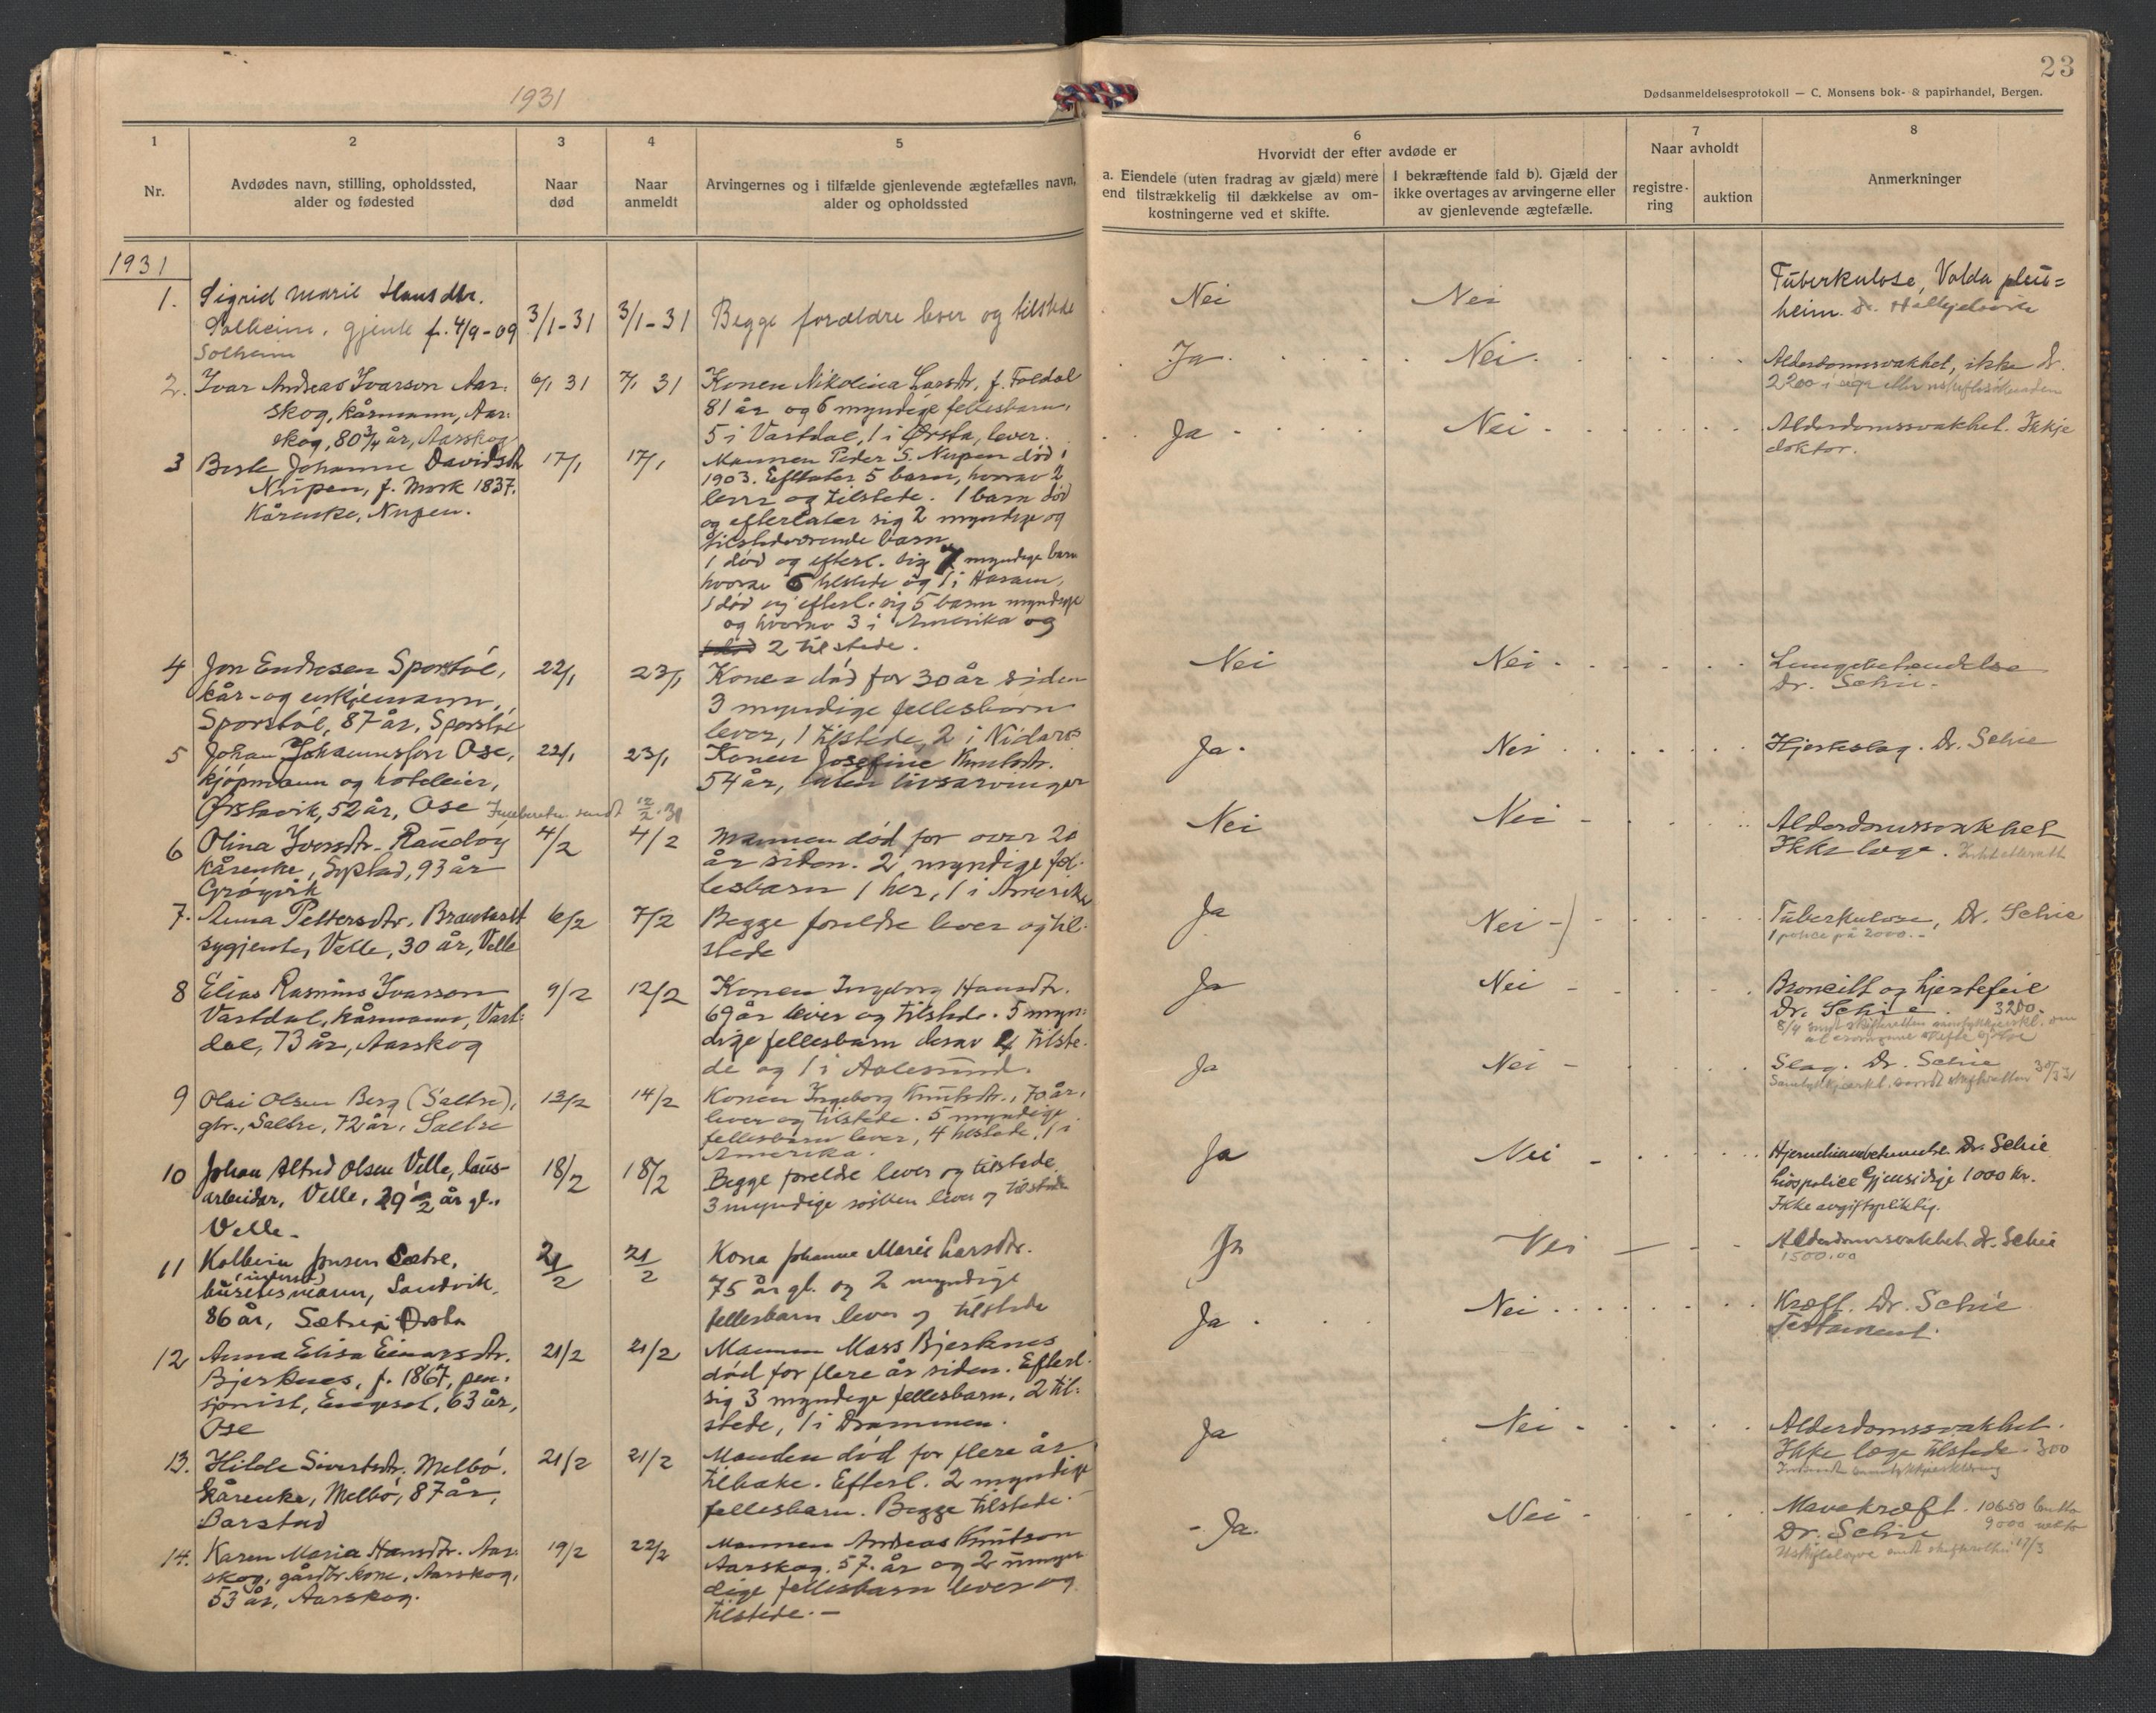 1931
23
Dødsanmeldelsesprotokoll — C. Monsens bok- & papirhandel, Bergen.
1
2
3
4
5
6
7
8
Nr.
Avdødes navn, stilling, opholdssted,
alder og fødested
Naar
død
Naar
anmeldt
Arvingernes og i tilfælde gjenlevende ægtefælles navn,
alder og opholdssted
Hvorvidt der efter avdøde er
a. Eiendele (uten fradrag av gjæld) mere
end tilstrækkelig til dækkelse av om-
kostningerne ved et skifte.
I bekræftende fald b). Gjæld der
ikke overtages av arvingerne eller
av gjenlevende ægtefælle.
Naar avholdt
registre-
ring
auktion
Anmerkninger
1931
1. Sigrid Marie Hansdtr.
Solheim, gjente f. 4/9-09
Solheim
3/1-31
3/1-31
Begge forældre lever og tilstede
Nei
Nei
Tuberkulose, Volda pleie=
heim. Dr.
2. Ivar Andreas Ivarson Aar-
skog, kårmann, Aar-
skog, 80 3/4 år, Aarskog
6/1 31
7/1 31
Konen Nikolina Larsdtr. f. Foldal
81 år og 6 myndige fellesbarn,
5 i Vartdal, 1 i Ørsta, lever.
Ja
Nei
Alderdomssvakhet, ikke dr.
3 Berte Johanne Davidsdtr
Nupen, f. Mork 1837.
Kårenke, Nupen.
17/1
17/1
Mannen Peder S. Nupen død i
1903. Efterlater 5 barn, hvorav 2
lever og tilstede. 1 barn død
og efterlater sig 2 myndige og
tilstedeværende barn
1 død og efterl. sig 7 myndige barn
hvorav 6 tilstede og 1 i Haram,
1 død og efterl. sig 5 barn myndige
og hvorav 3 i Amerika og
2 tilstede.
Ja
Nei
Alderdomssvakhet. Ikkje
doktor.
4 Jon Endresen Sporstøl,
kår- og enkjemann,
Sporstøl, 87 år, Sporstøl
22/1
23/1
Konen død for 30 år siden
3 myndige fellesbarn
lever, 1 tilstede, 2 i Nidaros
Nei
Nei
Lungebetendelse
Dr. Schie.
5 Johan Johannessen Ose,
kjøpmann og hoteleier,
Ørstavik, 52 år, Ose
22/1
23/1
Konen Josefine Knutsdtr.
54 år, uten livsarvinger
Ja
Nei
Hjerteslag. Dr. Schie
6 Olina Iversdtr. Raudøy
kårenke, 93 år
Grøgvik
4/2
4/2
Mannen død for over 20
år siden. 2 myndige fel-
lesbarn 1 her, 1 i Amerika
Nei
Nei
Alderdomssvakhet
Ikke læge.
7. Anna Pettersdtr.
sygjente, Velle, 30 år, Velle
6/2
7/2
Begge foreldre lever og til-
stede
Ja
Nei
Tuberkulose, Dr. Schie
1 police på 2000.-
8 Elias Rasmus Ivarson
Vartdal, kårmann, Vart-
dal, 73 år, Aarskog
9/2
12/2
Konen Ingeborg Hansdtr.
69 år lever og tilstede. 5 myn-
dige fellesbarn derav 4 tilste-
de og 1 i Aalesund.
Ja
Nei
Bronkitt og hjertefeil
Dr. Schie. 3200.
9 Olai Olsen Berg (Sætre),
gbr., Sætre, 72 år, Sætre
13/2
14/2
Konen Ingeborg Knutsdtr., 70 år,
lever og tilstede. 5 myndige
fellesbarn lever, 4 tilstede, 1 i
Amerika.
Ja
Nei
Slag. Dr. Schie
10 Johan Alfred Olsen Velle, laus-
arbeider, Velle, 29 1/2 år gl.,
Velle.
18/2
18/2
Begge forelde lever og tilstede.
3 myndige søsken lever og tilstede
Ja
Nei
Hjernehinnebetennelse Dr. Schie
Livspolice Gjensidige 1000 kr.
Ikke avgiftspliktig.
11 Kolbein Jonsen Sætre,
Sandvik,
86 år, Sætre i Ørsta
21/2
21/2
Kona Johanne Marie Larsdtr.
75 år gl. og 2 myndige
fellesbarn lever og tilstede
Ja
Nei
Alderdomssvakhet. dr. Schie
1500.00
12 Anna Elisa Einarsdtr.
Bjerknes, f. 1867, pen-
sjonist, Engeset, 63 år,
Ose
21/2
21/2
Mannen Mass Bjerknes
død for flere år siden. Efterl.
sig 3 myndige fellesbarn, 2 til-
stede, 1 i Drammen.
Ja
Nei
Kræft. Dr. Schie
Testament.
13. Hilde Sivertsdtr. Melbø.
kårenke, Melbø, 87 år,
Barstad
21/2
21/2
Manden død for flere år
tilbake. Efterl. 2 myndige
fellesbarn. Begge tilstede.
Ja
Nei
Alderdomssvakhet.
Ikke læge tilstede. 300
14. Karen Maria Hansdtr. Aar-
skog, gårdbr. kone, Aarskog,
53 år, Aarskog.
19/2
22/2
Mannen Andreas Knutson
Aarskog, 57 år og 2 umyn-
dige fellesbarn lever og
tilstede.—
Ja.
Nei
Mavekræft. 10650 brutto
Dr. Schie 9000 netto